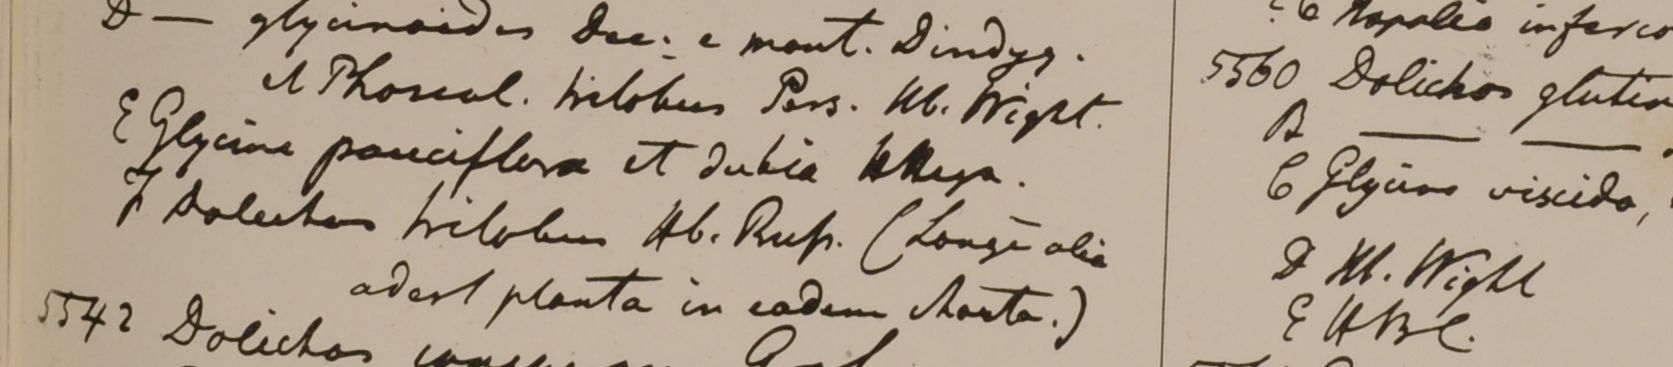 D — glycinoides Dec. e mont. Dindyg.
et Phaseol. trilobus Pers. Hb. Wight.
E Glycine pauciflora et dubia
F Dolichos trilobus Hb. Russ. (Longe alia
adest planta in eadem charta.)
5542 Dolichos
? C Napalia inferio
5560 Dolichos glutin
B — —
C Glycine viscida,
D Hb. Wight
E HBC.